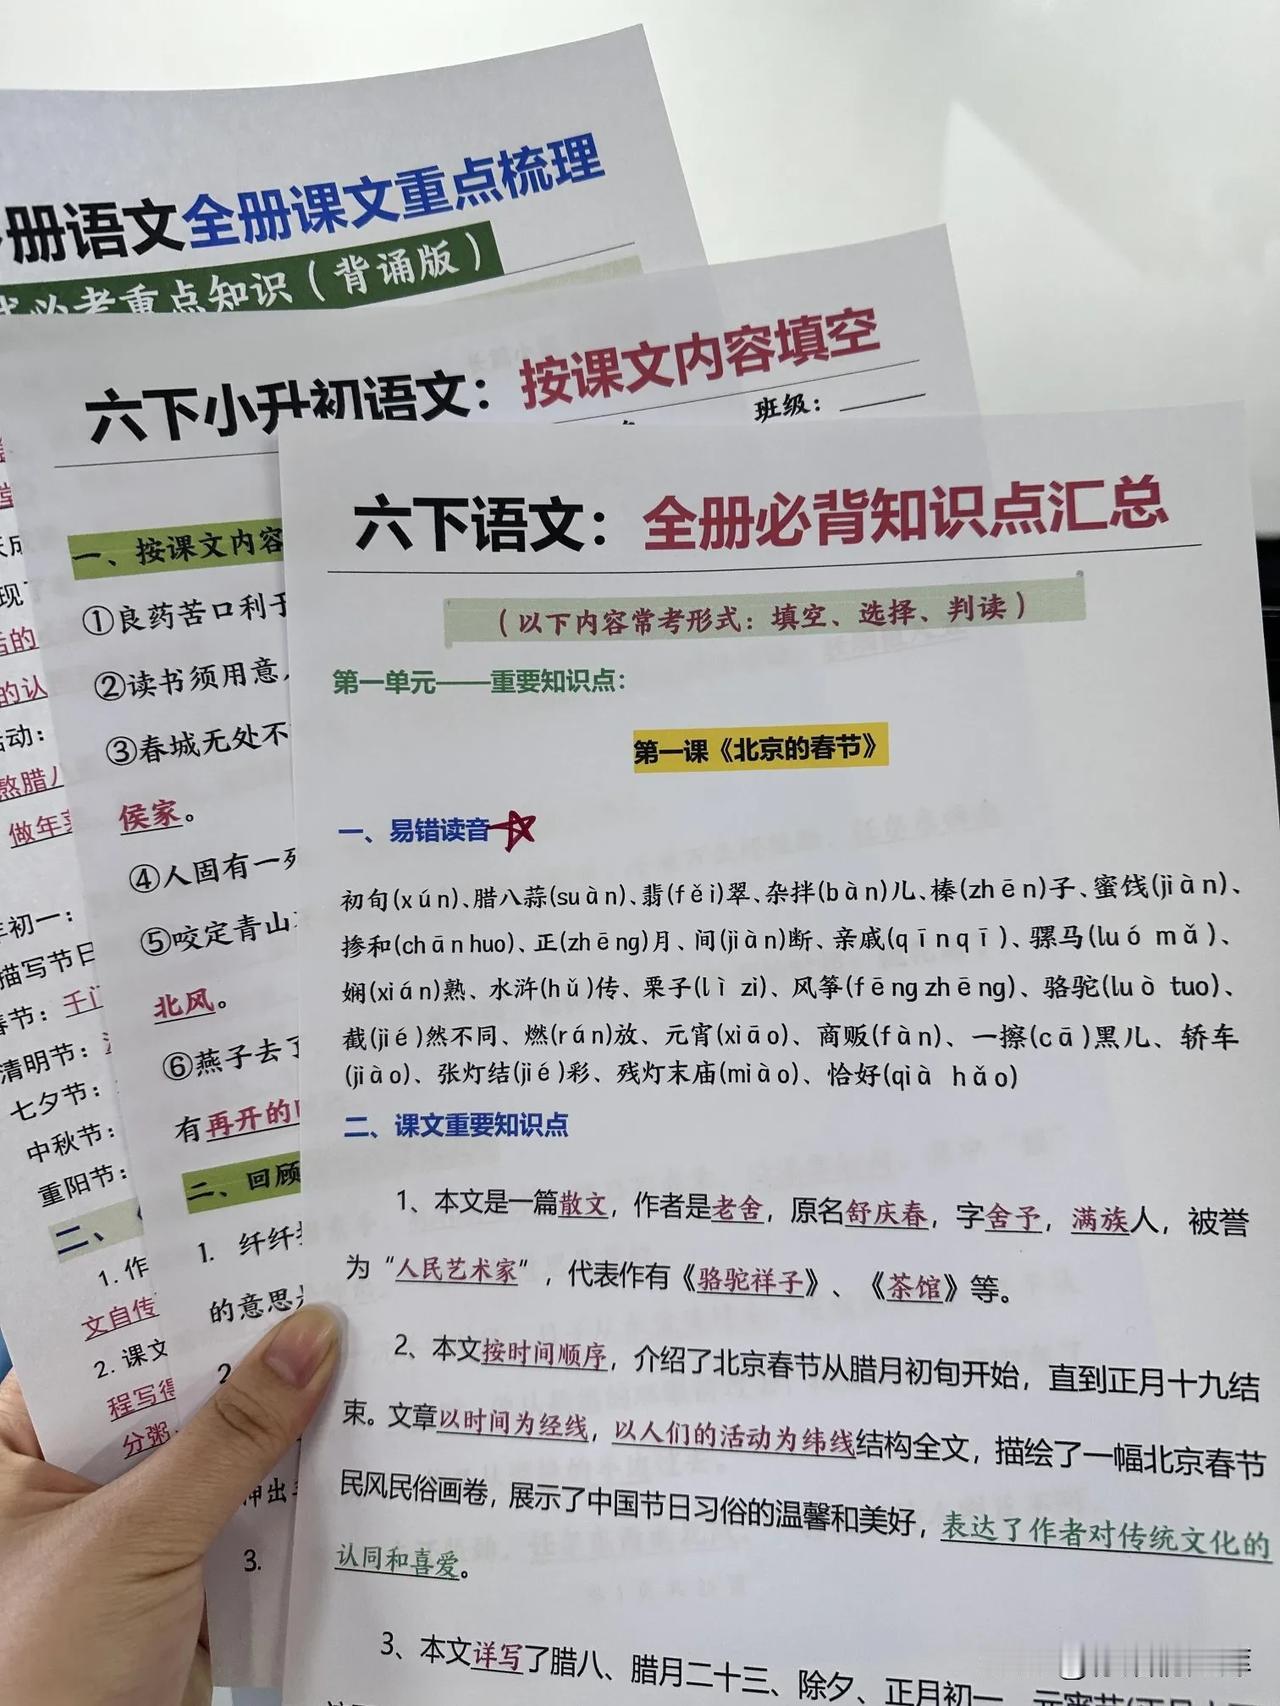 册语文全册课文重点梳理
必考重点知识(背诵版)
六下小升初语文：按课文内容填空
班级：
一、按课文内容
①良药苦口利于
②读书须用意
③春城无处不
侯家。
④人固有一死
⑤咬定青山
北风。
⑥燕子去了
有再开的
二、回顾
1. 纤纤
的意思
2
3.
的认
活动：
熬腊八
做年菜
年初一：
描写节日
春节：千门
清明节：
七夕节：
中秋节：
重阳节：
二、
1. 作
文自传
2. 课文
程写得
分粥
六下语文：全册必背知识点汇总
(以下内容常考形式：填空、选择、判读)
第一单元——重要知识点：
第一课《北京的春节》
一、易错读音
初旬(xún)、腊八蒜(suàn)、翡(fěi)翠、杂拌(bàn)儿、榛(zhēn)子、蜜饯(jiàn)、
掺和(chānhuo)、正(zhēng)月、间(jiàn)断、亲戚(qīnqī)、骡马(luó mǎ)、
娴(xián)熟、水浒(hǔ)传、栗子(lì zi)、风筝(fēngzhēng)、骆驼(luò tuo)、
截(jié)然不同、燃(rán)放、元宵(xiāo)、商贩(fàn)、一擦(cā)黑儿、轿车
(jiào)、张灯结(jié)彩、残灯末庙(miào)、恰好(qià hǎo)
二、课文重要知识点
1、本文是一篇散文，作者是老舍，原名舒庆春，字舍予，满族人，被誉
为“人民艺术家”，代表作有《骆驼祥子》、《茶馆》等。
2、本文按时间顺序，介绍了北京春节从腊月初旬开始，直到正月十九结
束。文章以时间为经线，以人们的活动为纬线结构全文，描绘了一幅北京春节
民风民俗画卷，展示了中国节日习俗的温馨和美好，表达了作者对传统文化的
认同和喜爱。
3、本文详写了腊八、腊月二十三、除夕、正月初一、元宵节